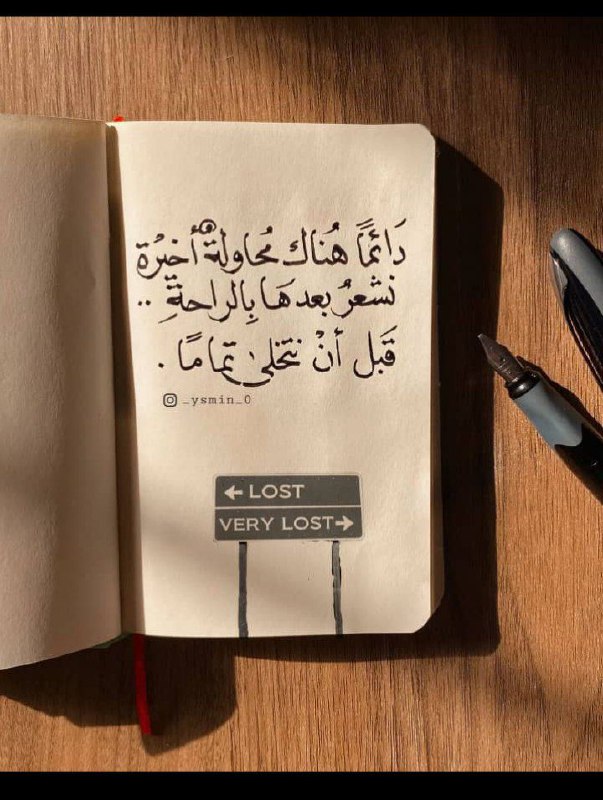 دَائمًا هُنَاك مُحاولةٌ أخيرَة
نشعرُ بعدهَا بِالراحةِ ..
قَبل أنْ نتخلىٰ تمامًا .
_ysmin_0
← LOST
VERY LOST→